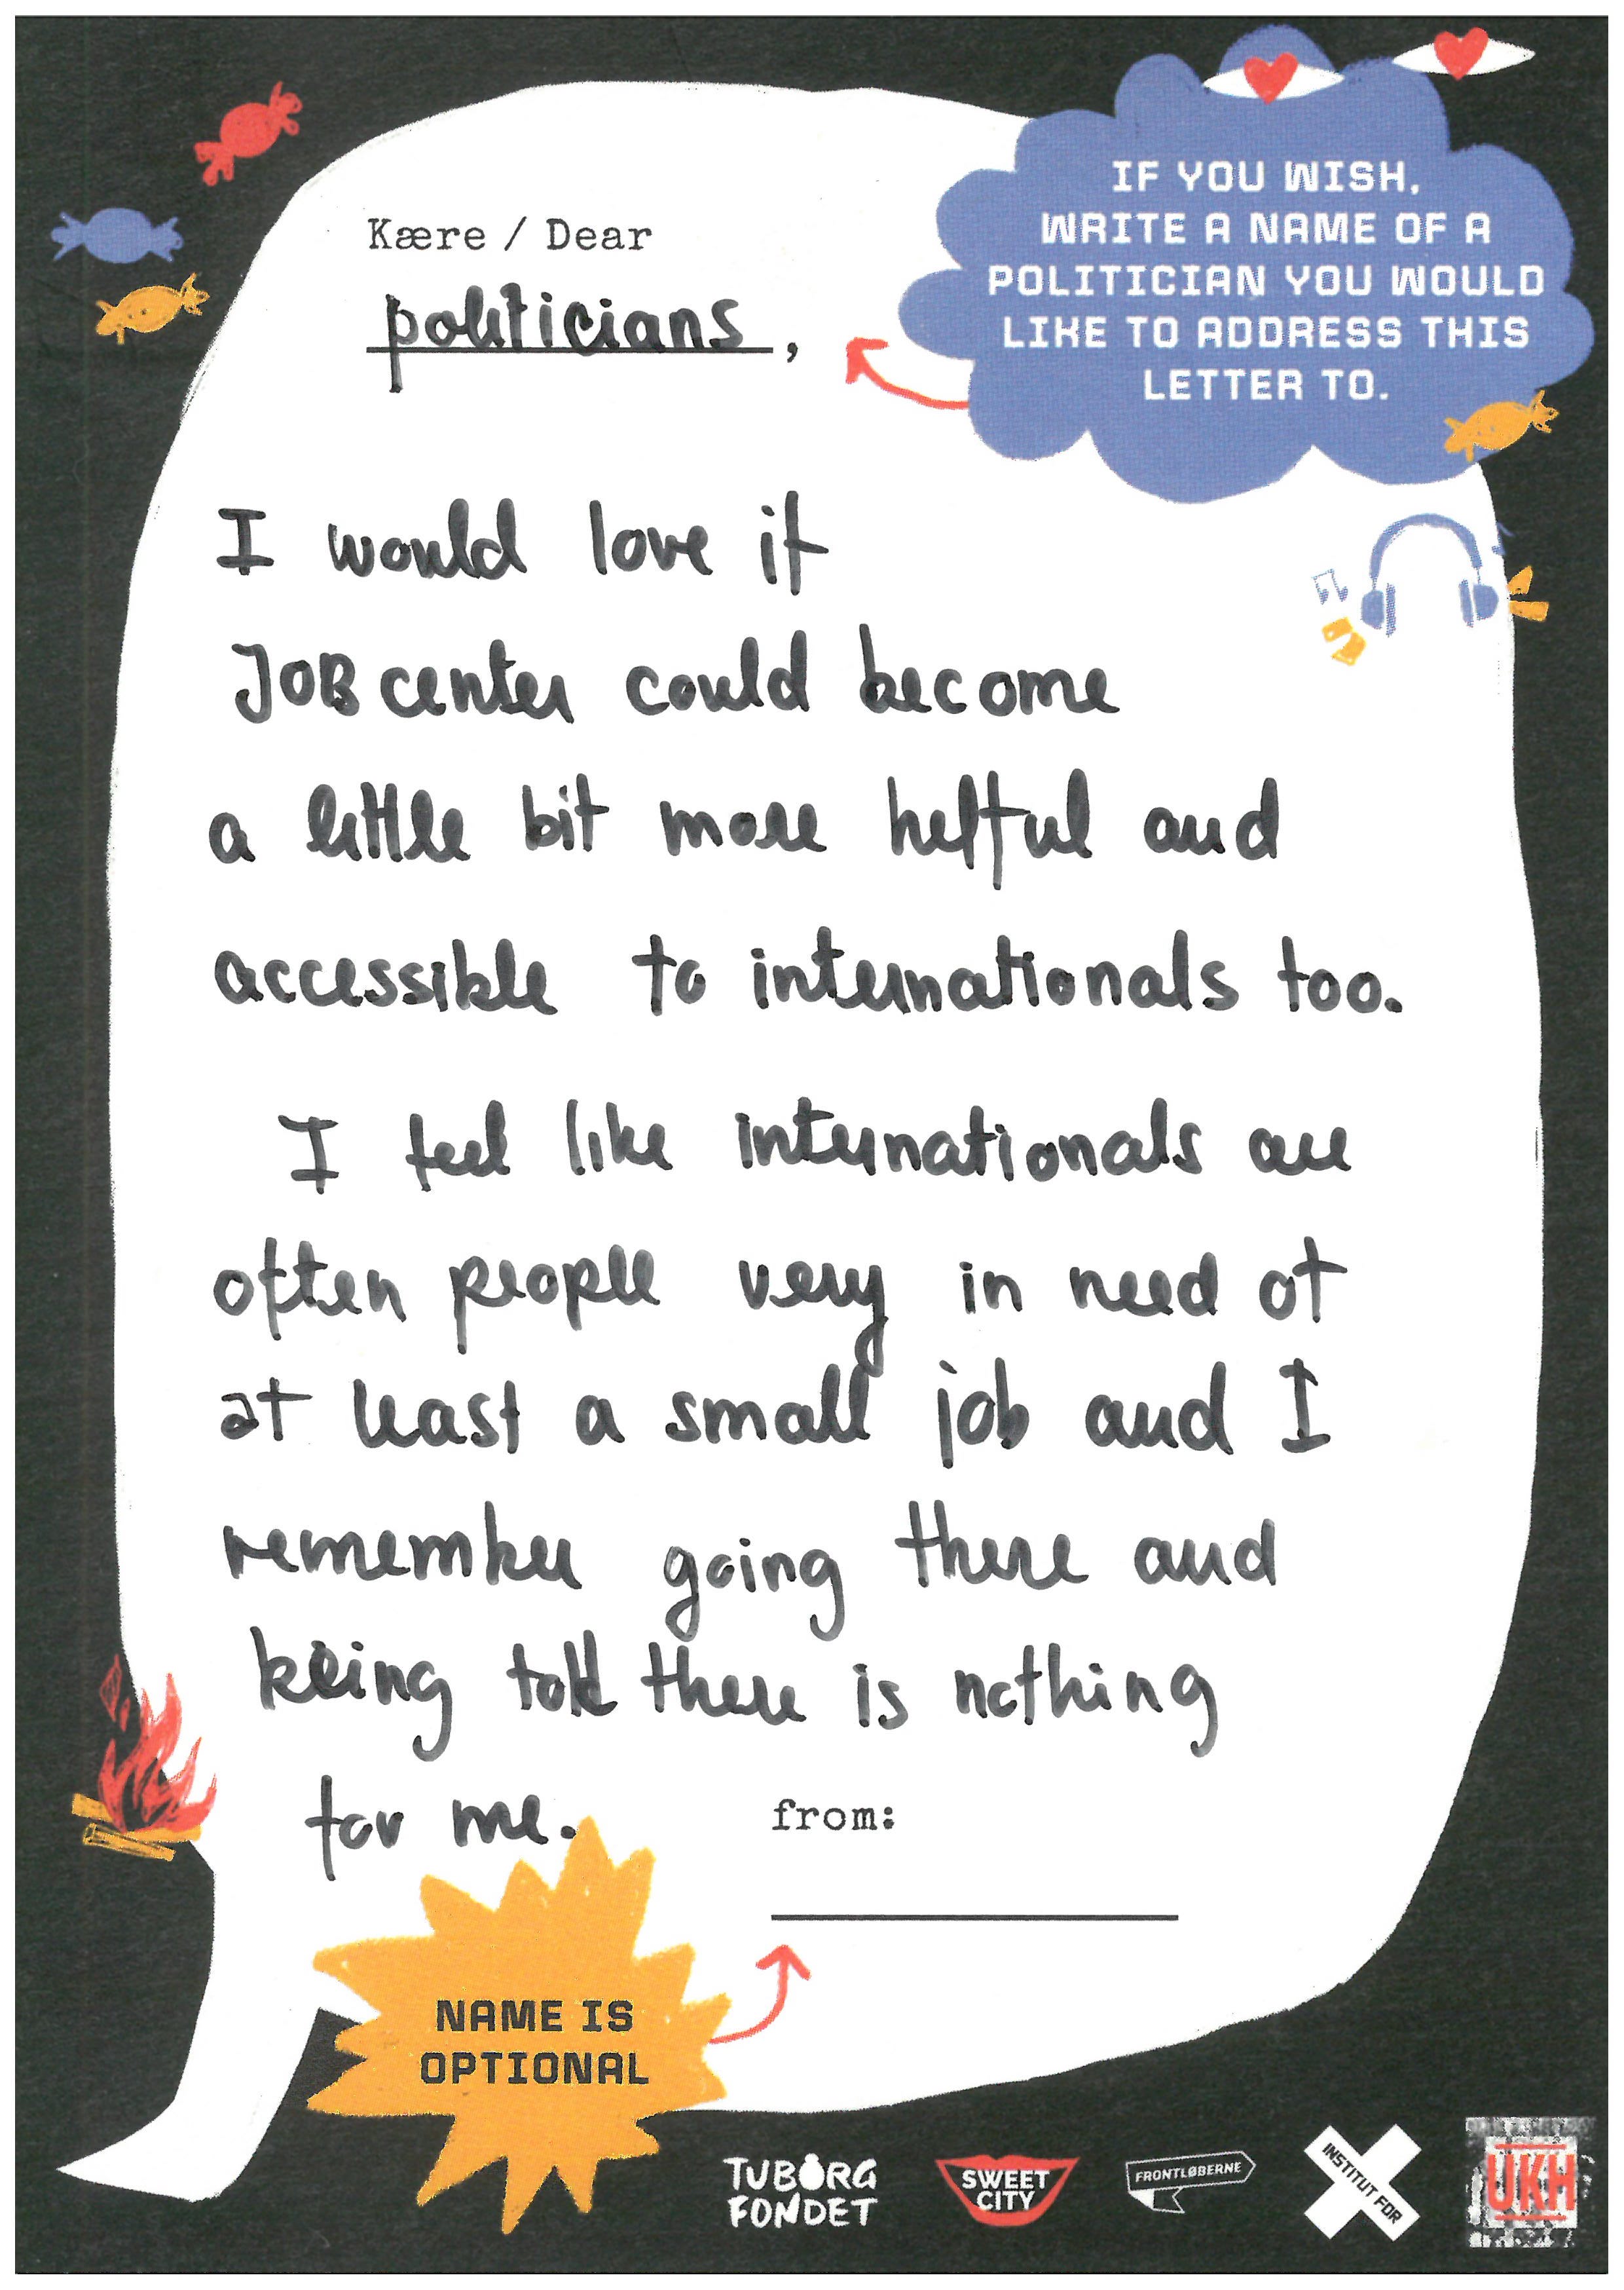 Kære / Dear
politicians,
IF YOU WISH,
WRITE A NAME OF A
POLITICIAN YOU WOULD
LIKE TO ADDRESS THIS
LETTER TO.
I would love if
JOB center could become
a little bit more helpful and
accessible to internationals too.
I feel like internationals are
often people very in need of
at least a small job and I
remember going there and
being told there is nothing
for me.
from:
NAME IS
OPTIONAL
TUBORG
FONDET
SWEET
CITY
FRONTLØBERNE
INSTITUT FOR
UKH